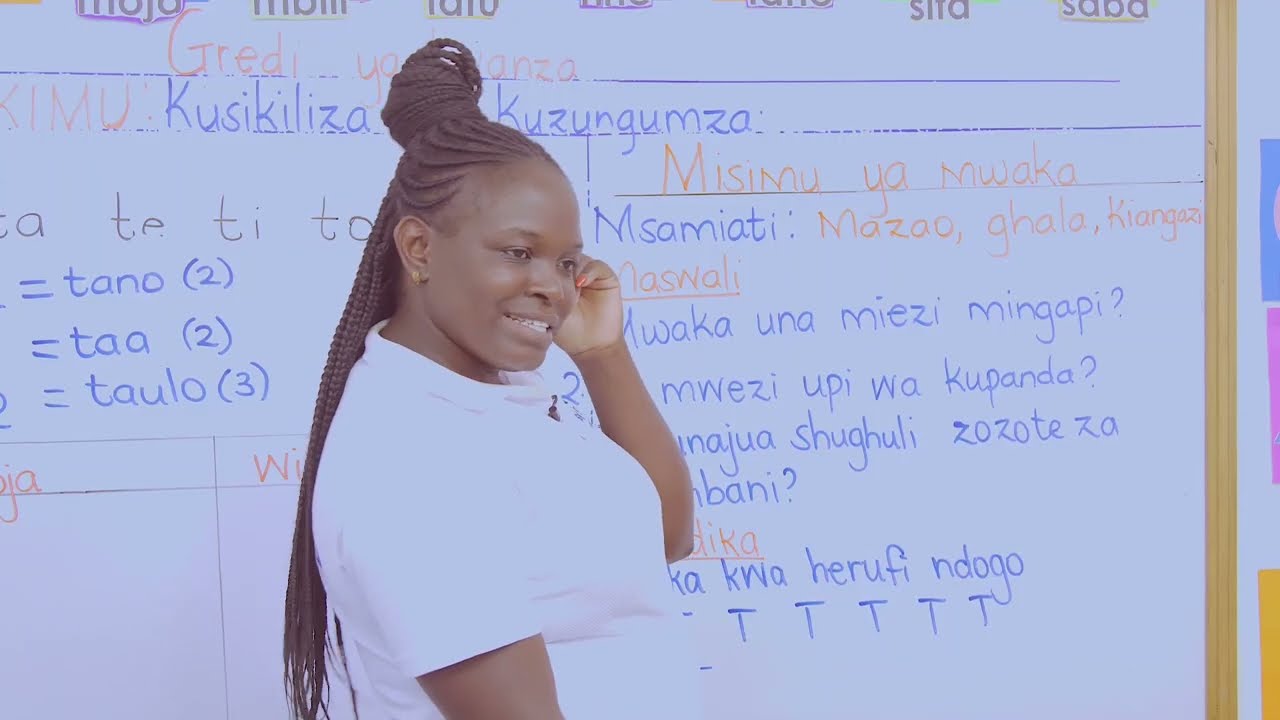 moja mbili tatu nne tano sita saba
Gredi ya
KIMU: Kusikiliza Kuzungumza:
Misimu ya mwaka
ta te ti to
Msamiati: Mazao, ghala, Kiangazi
= tano (2)
maswali
= taa (2)
Mwaka una miezi mingapi?
= taulo (3)
2. mwezi upi wa kupanda?
unajua shughuli zozote za
mbani?
oja
Wi
dika
ka kwa herufi ndogo
- T T T T T
-